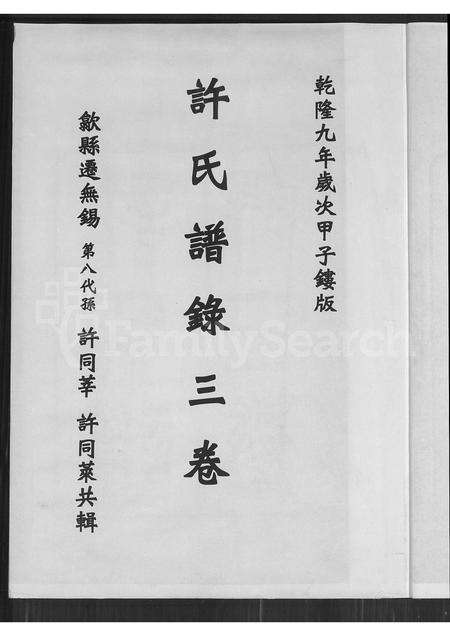 乾隆九年歲次甲子鏤版
許氏譜錄三卷
歙縣遷無錫 第八代孫 許同莘 許同萊共輯
FamilySearch